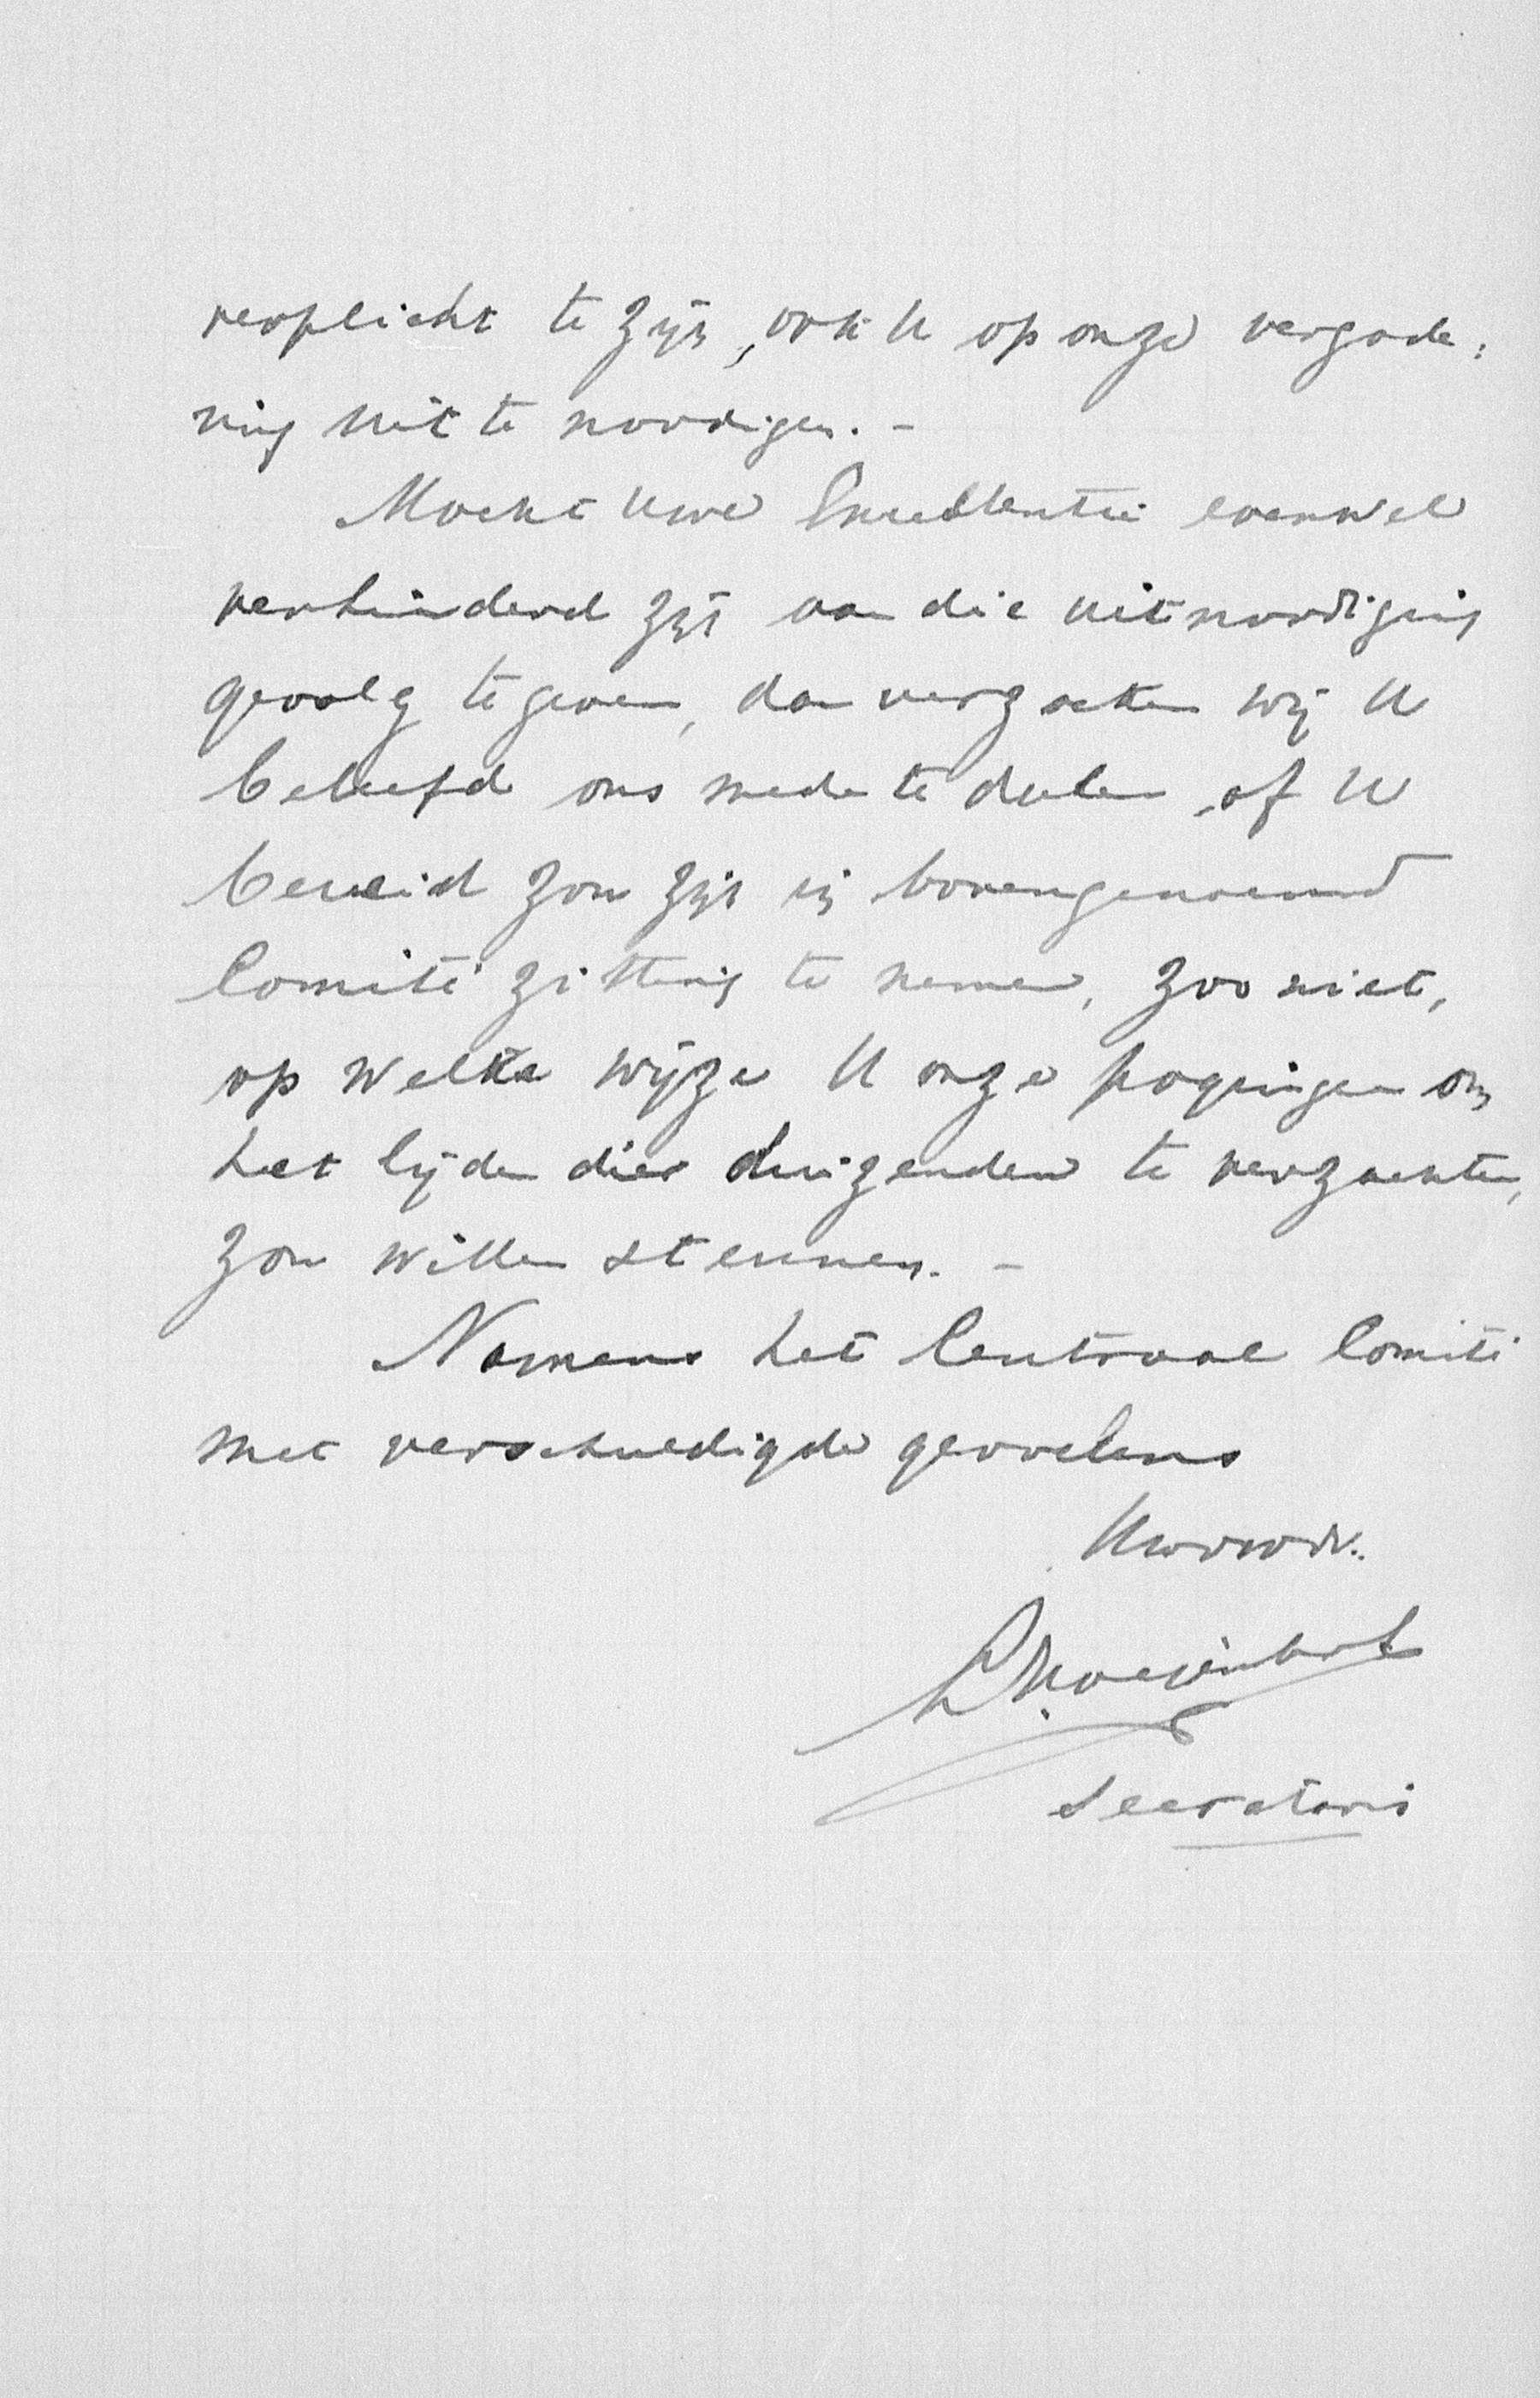 verplicht te zijn, ook U op onze vergade:
ring uit te noodigen. -
Mocht Uwe Excellentie evenwel
verhinderd zijn aan die uitnoodiging
gevolg te geven, dan verzoeken wij U
beleefd ons mede te deelen, of U
bereid zou zijn in bovengenoemd
Comité zitting te nemen, zoo niet,
op welke wijze U onze pogingen om
het lijden dier duizenden te verzachten,
zou willen steunen. -
Namens het Centraal Comité
met verschuldigde gevoelens
Uwdwdr.
Secretaris